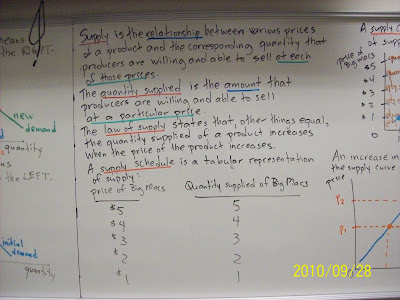 eans
the RIGHT.
new
demand
quantity
us
the LEFT.
initial
demand
quantity
Supply is the relationship between various prices
of a product and the corresponding quantity that
producers are willing and able to sell at each
of those prices.
The quantity supplied is the amount that
producers are willing and able to sell
at a particular price.
The law of supply states that, other things equal,
the quantity supplied of a product increases
when the price of the product increases.
A supply schedule is a tabular representation
of supply:
price of Big Macs Quantity supplied of Big Macs
$5 5
$4 4
$3 3
$2 2
$1 1
A supply c
of supp
price of
Big Macs
$5
$4
$3
$2
$1
0
An increase in
the supply curve
price
P2
P1
2010/09/28